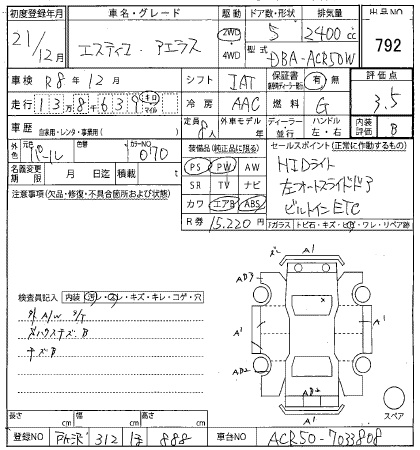 初度登録年月 車名・グレード 駆動 ドア数・形状 排気量 出品NO
21/12月 エスティマ アエラス 2WD 4WD 5 2400cc 792
型式 DBA-ACR50W
車検 R8年12月 シフト IAT 保証書 有 無 評価点
走行 138639 キロ マイル 冷房 AAC 燃料 G 3.5
車歴 自家用・レンタ・事業用( ) 定員 8人 外車モデル 年 ディーラー 並行 ハンドル 左・右 内装評価 B
外色 元色 パール 色替 カラーNO 070 装備品(純正品に限る) セールスポイント(正常に作動するもの)
名義変更期限 月 日迄 積載 t PS PW AW HIDライト
注意事項(欠品・修復・不具合箇所および状態) SR TV ナビ 左オートスライドドア
カワ エアB ABS ビルトインETC
R券 15,220円 Fガラス トビ石・キズ・ヒビ・ワレ・リペア跡
A1
AD3
検査員記入 内装 汚レ・コレ・キズ・キレ・コゲ・穴
外A/W S/T A1 A1
キズB AD2
AB2
A1
スペア
長さ cm 幅 cm 高さ cm
登録NO 所沢 312 ほ 888 車台NO ACR50-7033808